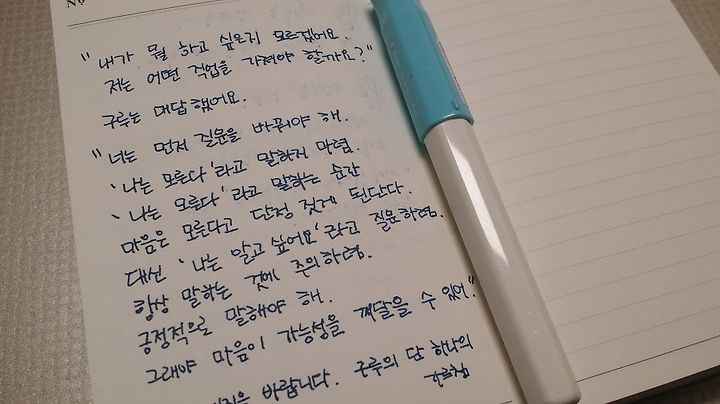 No
"내가 뭘 하고 싶은지 모르겠어요.
저는 어떤 직업을 가져야 할까요?"
구루는 대답했어요.
"너는 먼저 질문을 바꿔야 해.
'나는 모른다'라고 말하지 마렴.
'나는 모른다'라고 말하는 순간
마음은 모른다고 단정 짓게 된단다.
대신 '나는 알고 싶어요'라고 질문하렴.
항상 말하는 것에 주의하렴.
긍정적으로 말해야 해.
그래야 마음이 가능성을 깨달을 수 있어."
바랍니다. 구루의 단 하나의
가르침